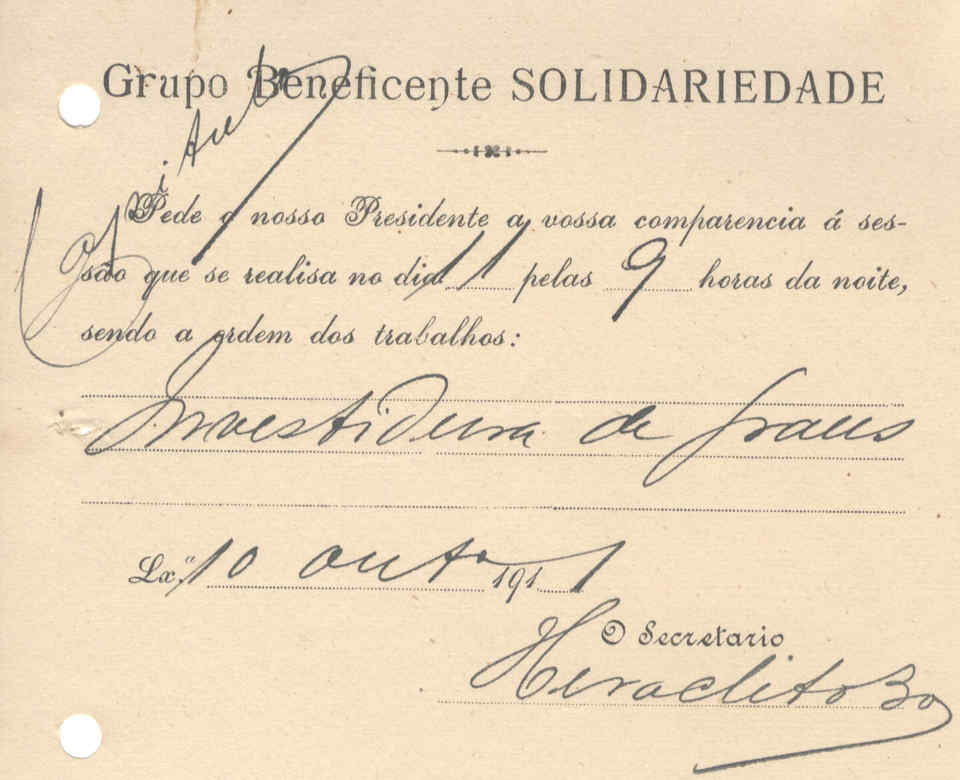 Grupo Beneficente SOLIDARIEDADE
Pede o nosso Presidente a vossa comparencia á ses-
são que se realisa no dia 11 pelas 9 horas da noite,
sendo a ordem dos trabalhos:
Investidura de graus
Lx.ª, 10 outº 1911
O Secretario
Heraclito